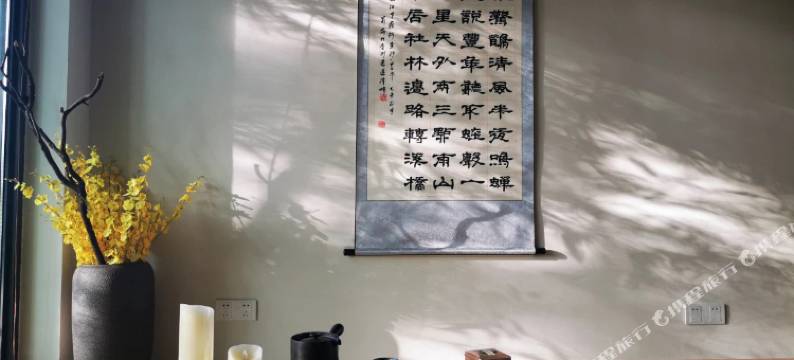 驚鵲清風半夜鳴蟬
說豐年聽取蛙聲一
星天外兩三點雨山
店社林邊路轉溪橋
攜程旅行
攜程旅行